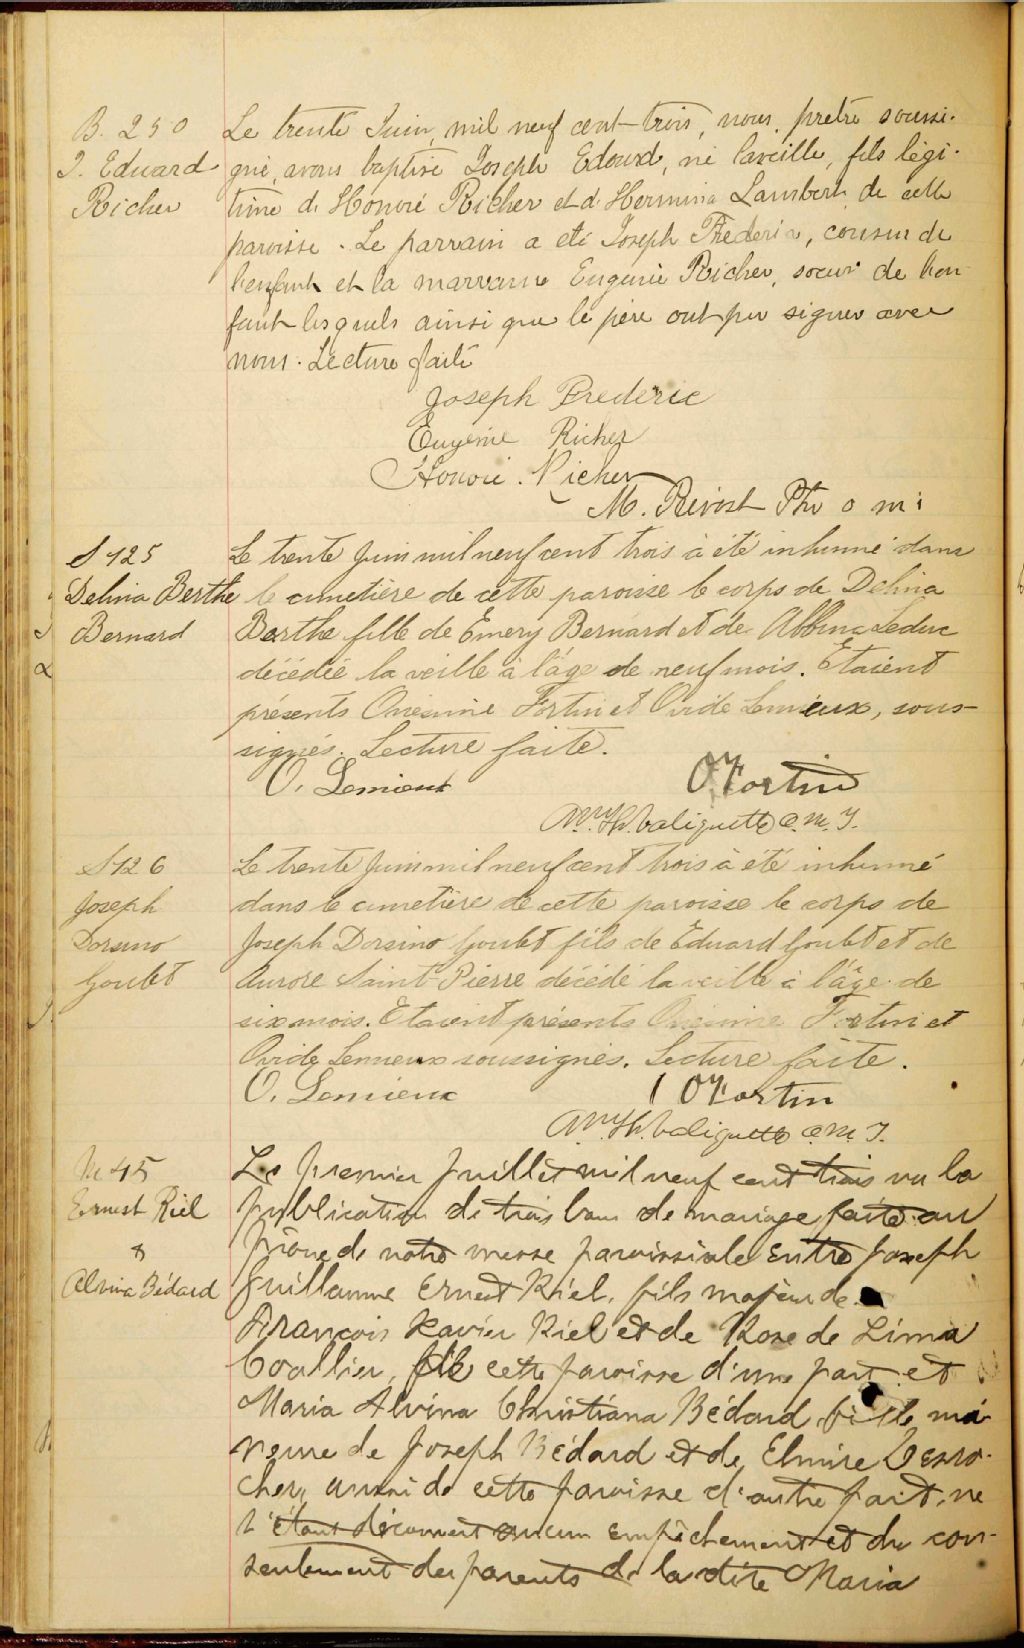 B. 250
J. Eduard
Richer
Le trente Juin, mil neuf cent-trois, nous, prêtre soussi-
gné, avons baptisé Joseph Edouard, né la veille, fils légi-
time de Honoré Richer et d'Hermina Lambert de cette
paroisse. Le parrain a été Joseph Frederic, cousin de
l'enfant et la marraine Eugenie Richer, soeur de l'en-
fant lesquels ainsi que le père ont pu signer avec
nous. Lecture faite
Joseph Frederic
Eugenie Richer
Honoré Richer
M. Prévost Ptr o m i
S 125
Delina Berthe
Bernard
Le trente Juin mil neuf cent trois à été inhumé dans
le cimetière de cette paroisse le corps de Delina
Berthe fille de Emery Bernard et de Albina Leduc
décédée la veille à l'âge de neuf mois. Etaient
présents Onésime Fortin et Ovide Lemieux, sous-
signés. Lecture faite.
O. Lemieux
O Fortin
Wm H. Valiquette O.M.I.
S 126
Joseph
Dorsino
Goulet
Le trente Juin mil neuf cent trois à été inhumé
dans le cimetière de cette paroisse le corps de
Joseph Dorsino Goulet fils de Eduard Goulet et de
Aurore Saint-Pierre décédé la veille à l'âge de
six mois. Etaient présents Onésime Fortin et
Ovide Lemieux soussignés. Lecture faite.
O. Lemieux
O Fortin
Wm H. Valiquette O.M.I.
M 45
Ernest Riel
&
Alvina Bédard
Le premier Juillet mil neuf cent trois vu la
publication de trois bans de mariage faite au
prône de notre messe paroissiale entre Joseph
Guillaume Ernest Riel, fils majeur de
François Xavier Riel et de Rose de Lima
Coallier, de cette paroisse d'une part et
Maria Alvina Christiana Bédard fille mi-
neure de Joseph Bédard et de Elmire Desro-
cher, aussi de cette paroisse d'autre part, ne
s'étant découvert aucun empêchement et du con-
sentement des parents de la dite Maria